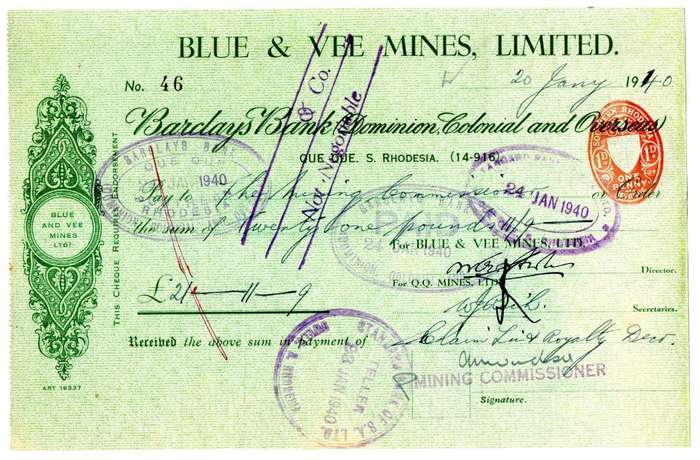 BLUE & VEE MINES, LIMITED.
No. 46
20 Jany 1940
& Co.
Not Negotiable
Barclays Bank (Dominion, Colonial and Overseas)
QUE QUE. S. RHODESIA. (14-916)
SOUTHERN RHODESIA
1D 1D
ONE PENNY
BARCLAYS BANK
QUE QUE
JAN 1940
RHODESIA
STANDARD BANK
24 JAN 1940
Pay to The Mining Commissioner or Order
the sum of Twenty one pounds 11/9
PAID
24 JAN 1940
For BLUE & VEE MINES, LTD.
Director.
For Q.Q. MINES, LTD.
Secretaries.
£21-11-9
BLUE
AND VEE
MINES
LTD.
THIS CHEQUE REQUIRES ENDORSEMENT
Received the above sum in payment of Claim Lic & Royalty Decr.
STANDARD BANK OF S.A. LTD.
TELLER
23 JAN 1940
MINING COMMISSIONER
Signature.
ART 16337